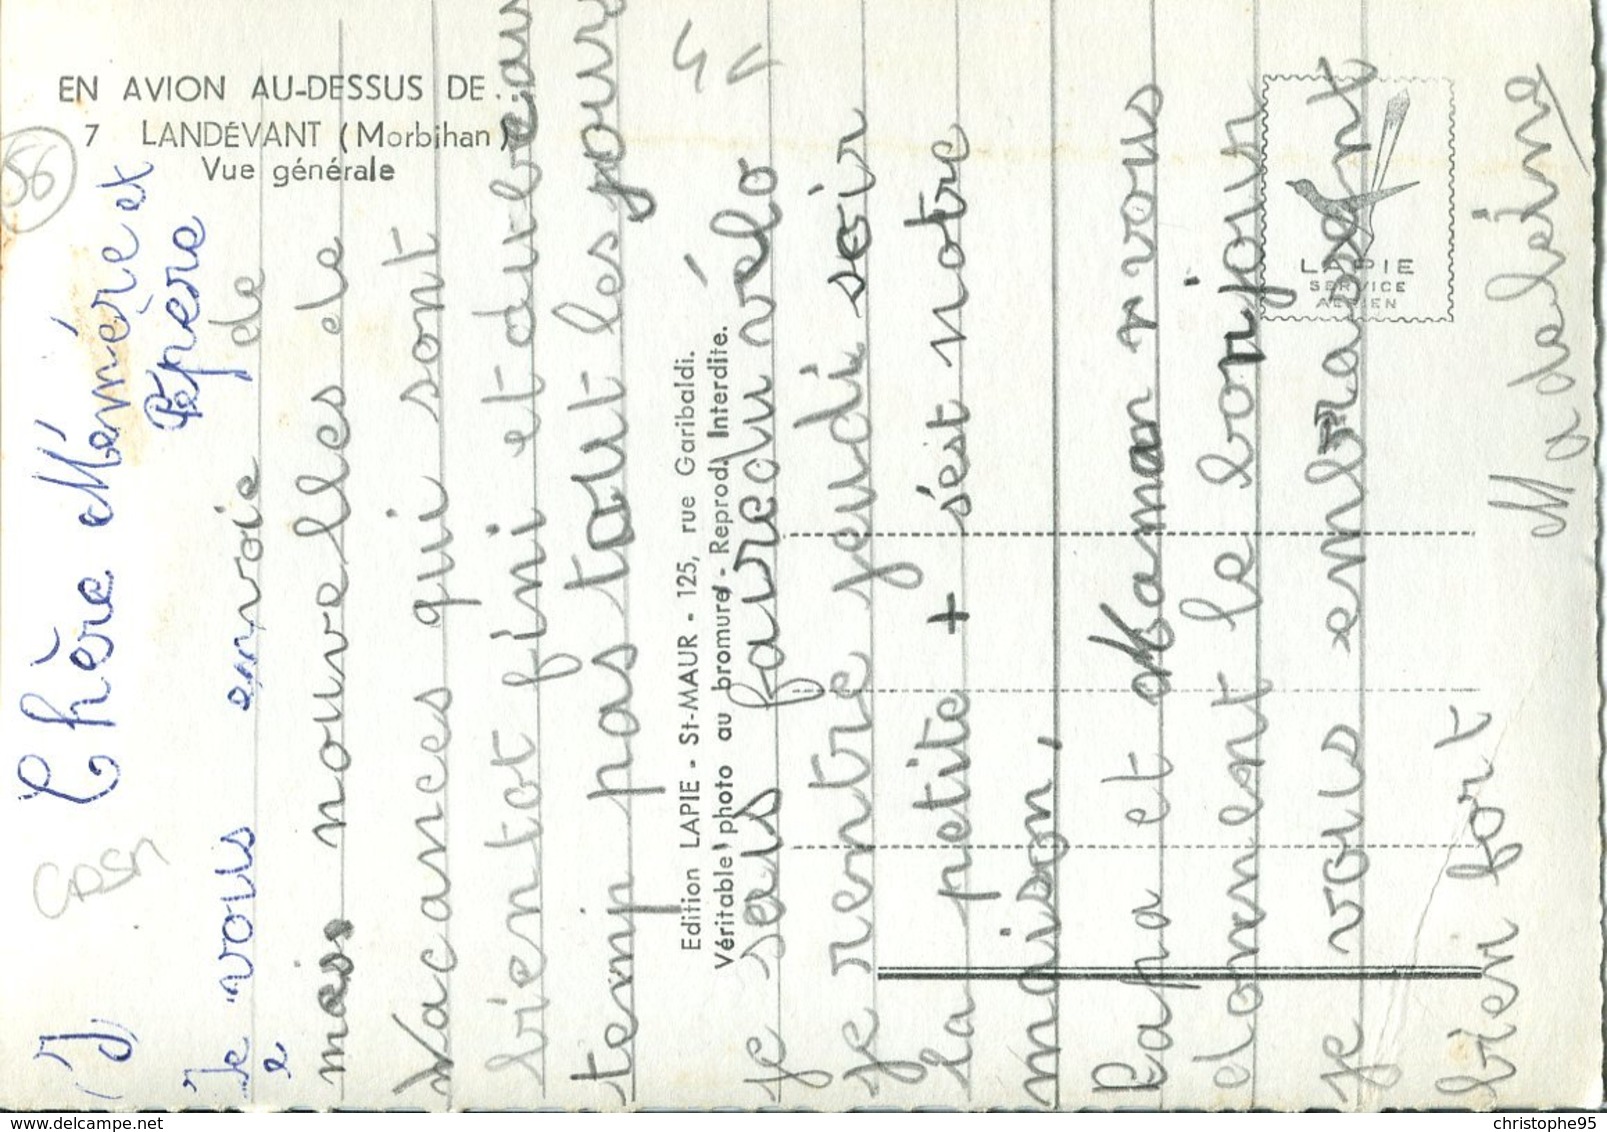 EN AVION AU-DESSUS DE...
7 LANDÉVANT (Morbihan)
Vue générale
56
Chère Mémère et
Pépère
Je vous envoie de
mes nouvelles de
Vacances qui sont
bientot fini et du beau
temp pas tout les jours
je sais faire du vélo
je rentre jeudi soir
la petite + s'est notre
maison,
Papa et Maman vous
donnent le bonjour
je vous embrassent
bien fort
Madeleine
Edition LAPIE - St-MAUR - 125, rue Garibaldi.
Véritable photo au bromure - Reprod. Interdite.
LAPIE
SERVICE
AÉRIEN
CPSM
delcampe.net
christophe95